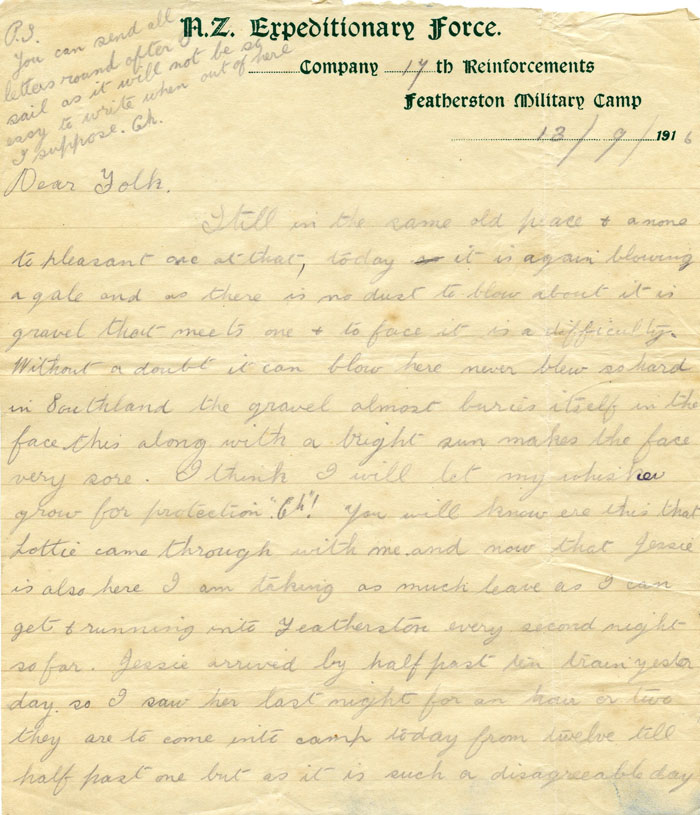 P.S.
You can send all
letters round after I
sail as it will not be so
easy to write when out of here
I suppose. Eh.
N.Z. Expeditionary Force.
Company 17th Reinforcements
Featherston Military Camp
13/9/1916
Dear Folk.
Still in the same old peace & a none
to pleasant one at that, today it is again blowing
a gale and as there is no dust to blow about it is
gravel that meets one & to face it is a difficulty.
Without a doubt it can blow here never blew so hard
in Southland the gravel almost buries itself in the
face this along with a bright sun makes the face
very sore. I think I will let my whisker
grow for protection "Eh"! You will know ere this that
Lottie came through with me. and now that Jessie
is also here I am taking as much leave as I can
get & running into Featherston every second night
so far. Jessie arrived by half past ten train yester
day. so I saw her last night for an hour or two
they are to come into camp today from twelve till
half past one but as it is such a disagreeable day